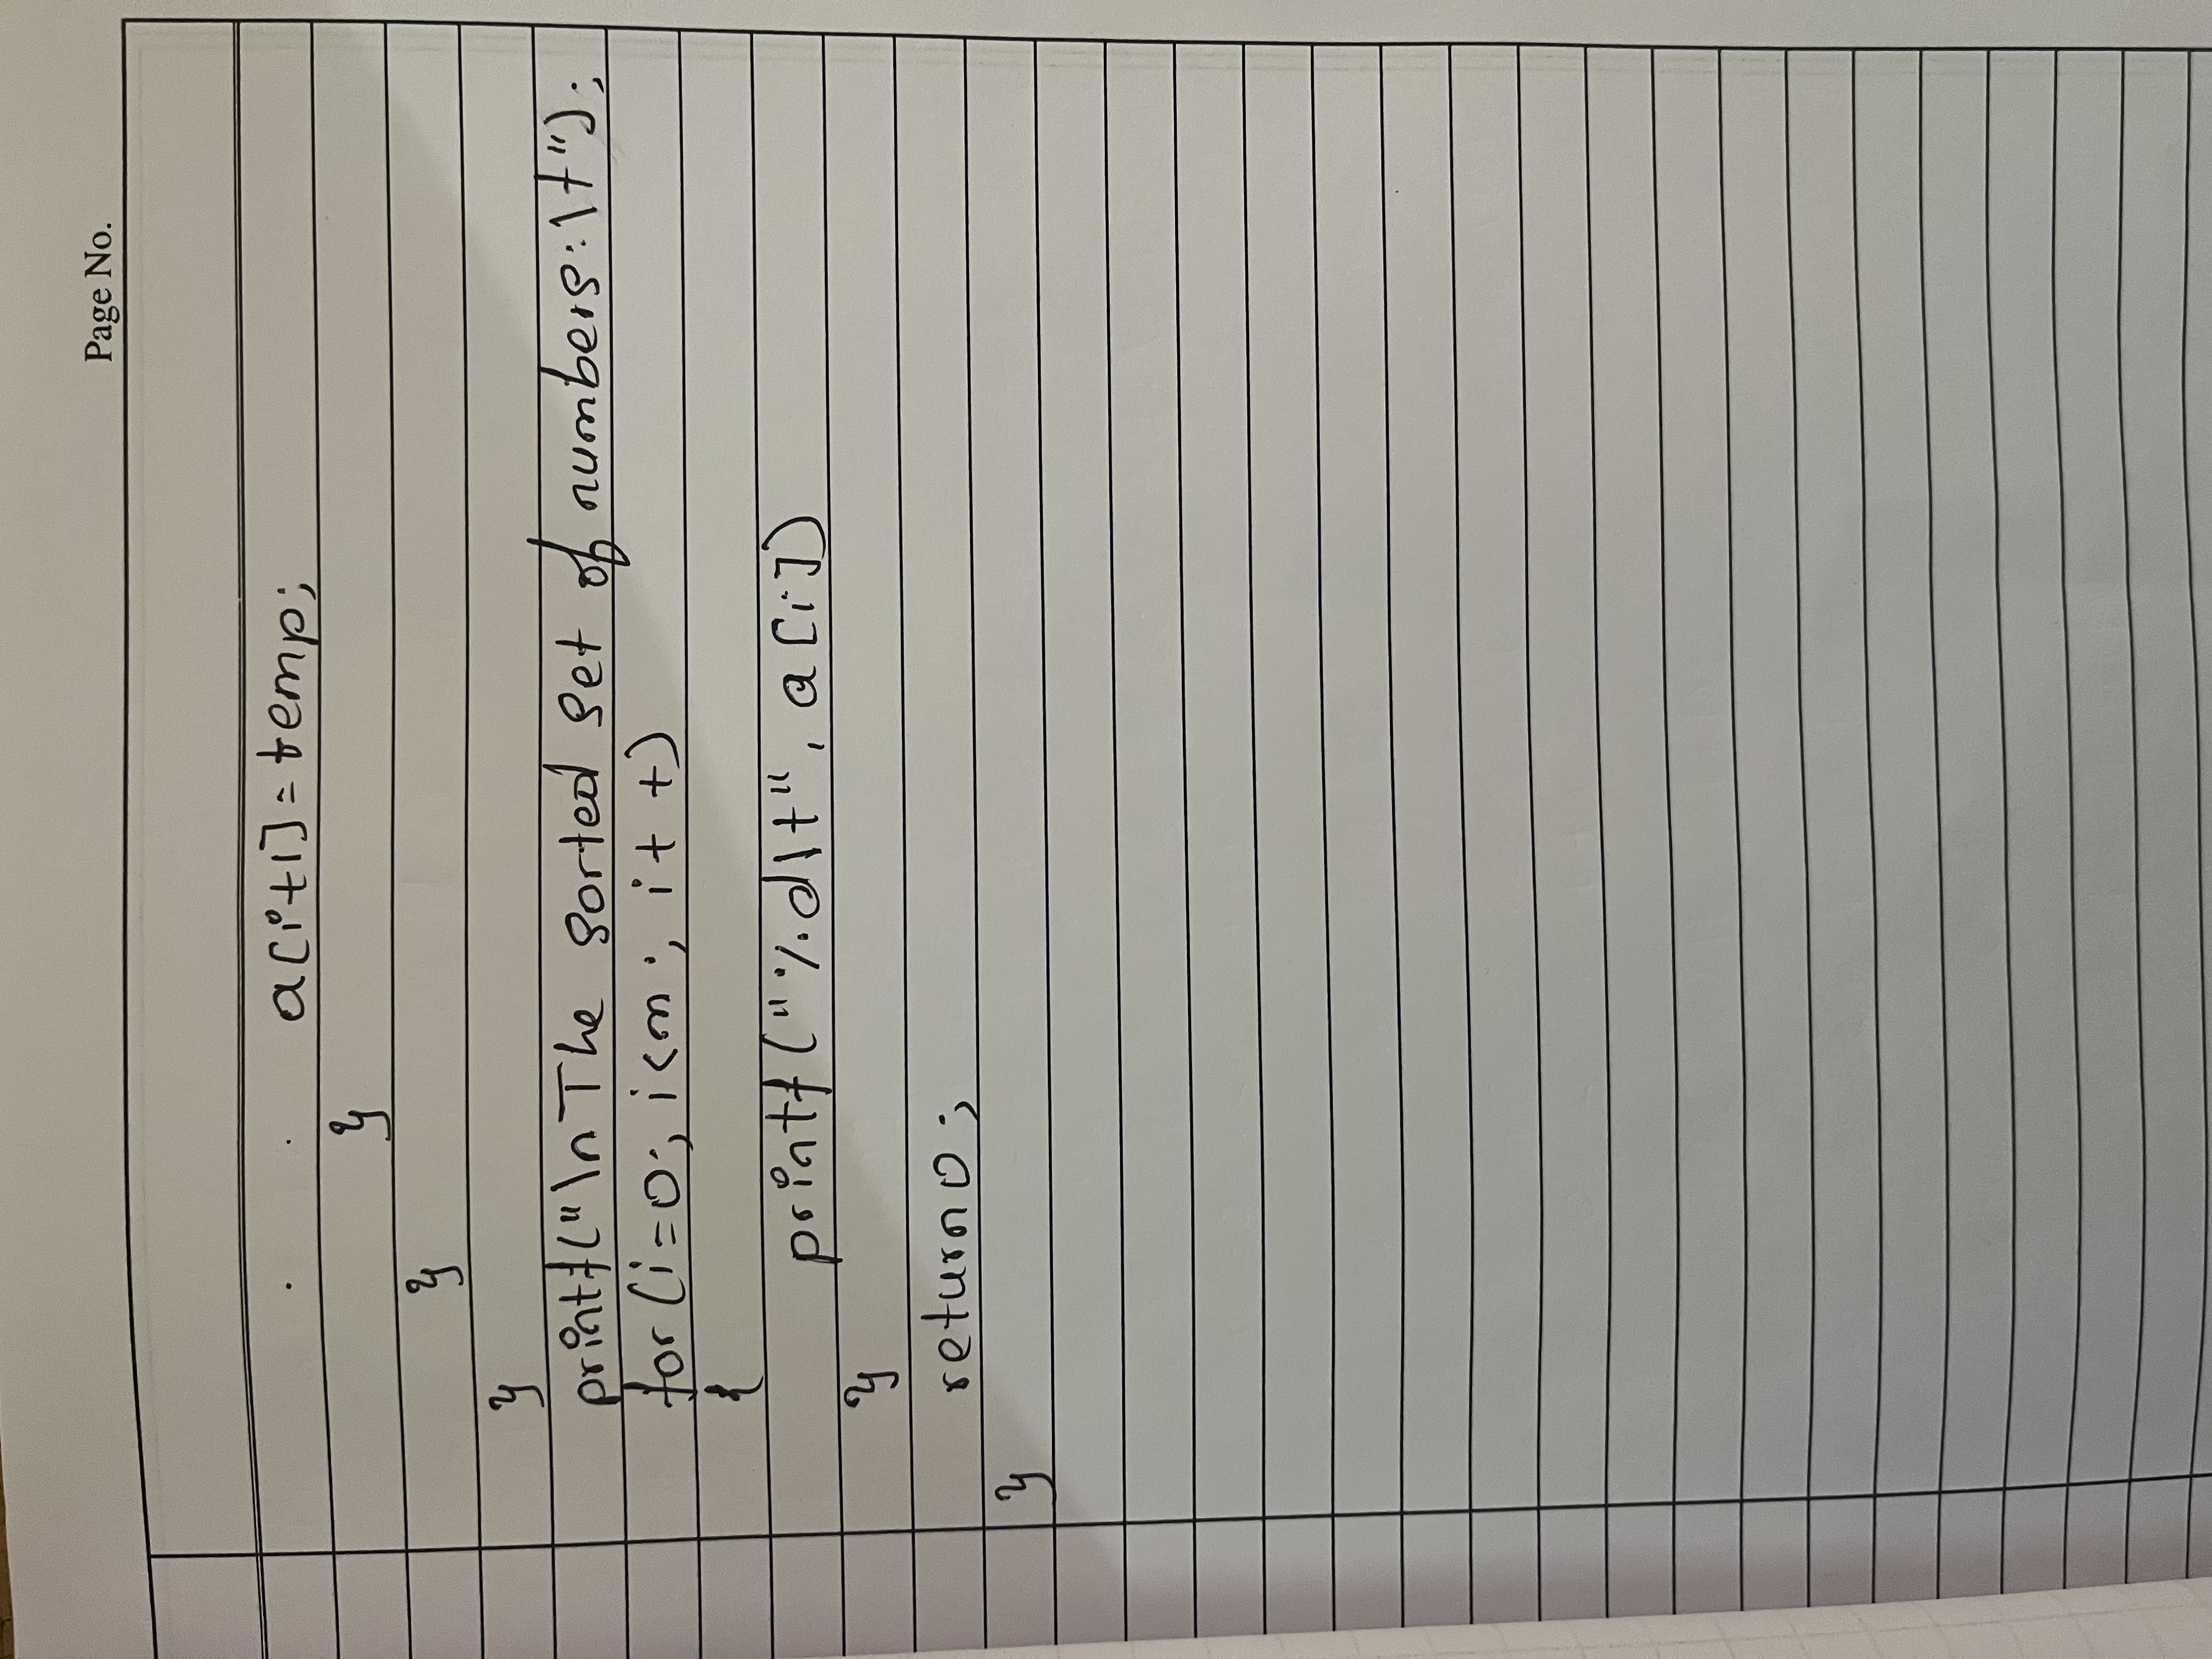 Page No.
a[i+1]=temp;
}
}
}
printf("\n The sorted set of numbers:\t");
for(i=0; i<n; i++)
{
printf("%d\t", a[i])
}
return 0;
}